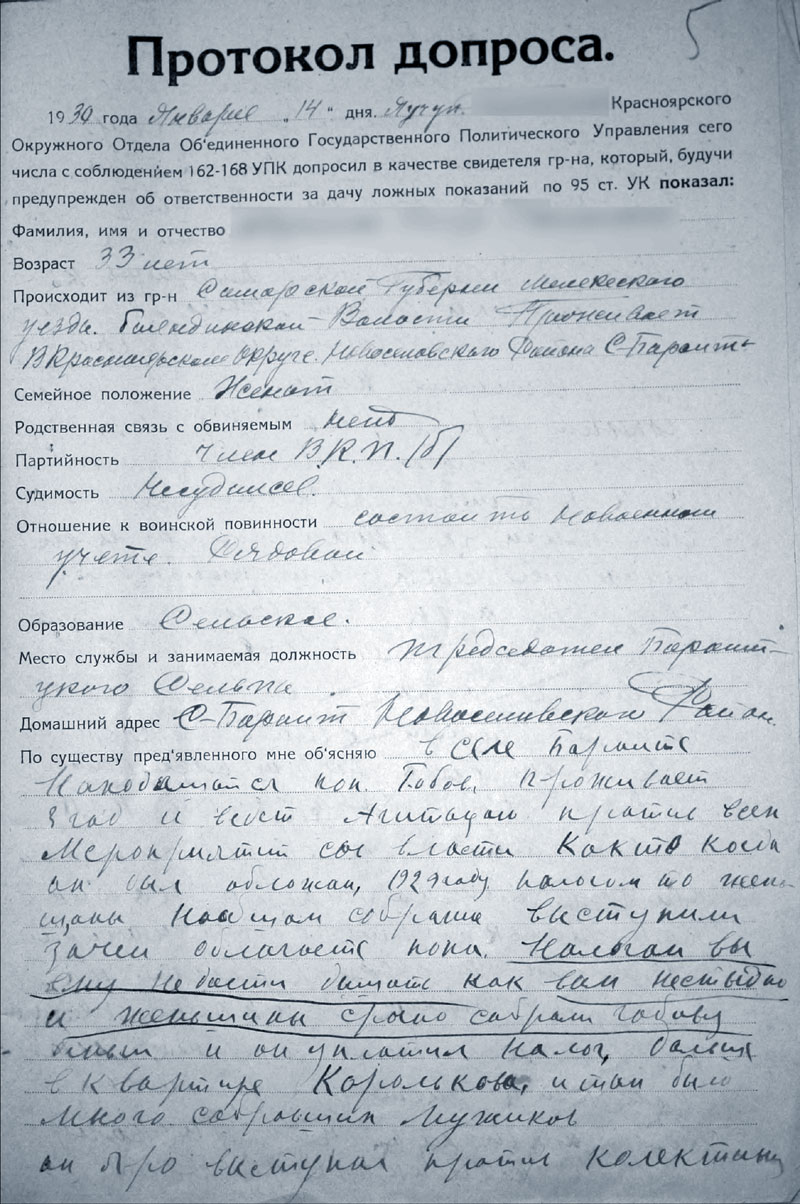 5
Протокол допроса.
1930 года Января „14“ дня. Красноярского
Окружного Отдела Об'единенного Государственного Политического Управления сего
числа с соблюдением 162-168 УПК допросил в качестве свидетеля гр-на, который, будучи
предупрежден об ответственности за дачу ложных показаний по 95 ст. УК показал:
Фамилия, имя и отчество
Возраст 33 лет
Происходит из гр-н Самарской Губернии Мелекеского
уезда. Волости Проживает
В Красноярском Округе. Новоселовского Района С-Бараит
Семейное положение Женат
Родственная связь с обвиняемым нет
Партийность Член В.К.П. /б/
Судимость Несудился.
Отношение к воинской повинности состоит на военном
учете. Рядовой
Образование Сельское.
Место службы и занимаемая должность председател Бараит-
цкого
Домашний адрес С-Бараит Новоселовского Район.
По существу пред'явленного мне об'ясняю в селе Бараите
поп. проживает
3 год и ведет против всех
Мероприятий сов власти Как то когда
он был обложан, 1929 году налогом то жен-
щины собрание выступили
зачем облагаете попа. Налогом вы
как вам нестыдно
и женьщины собрали
и он уплотил налог,
в квартире Королькова, и там было
много собравших мужиков
он выступал против колективи